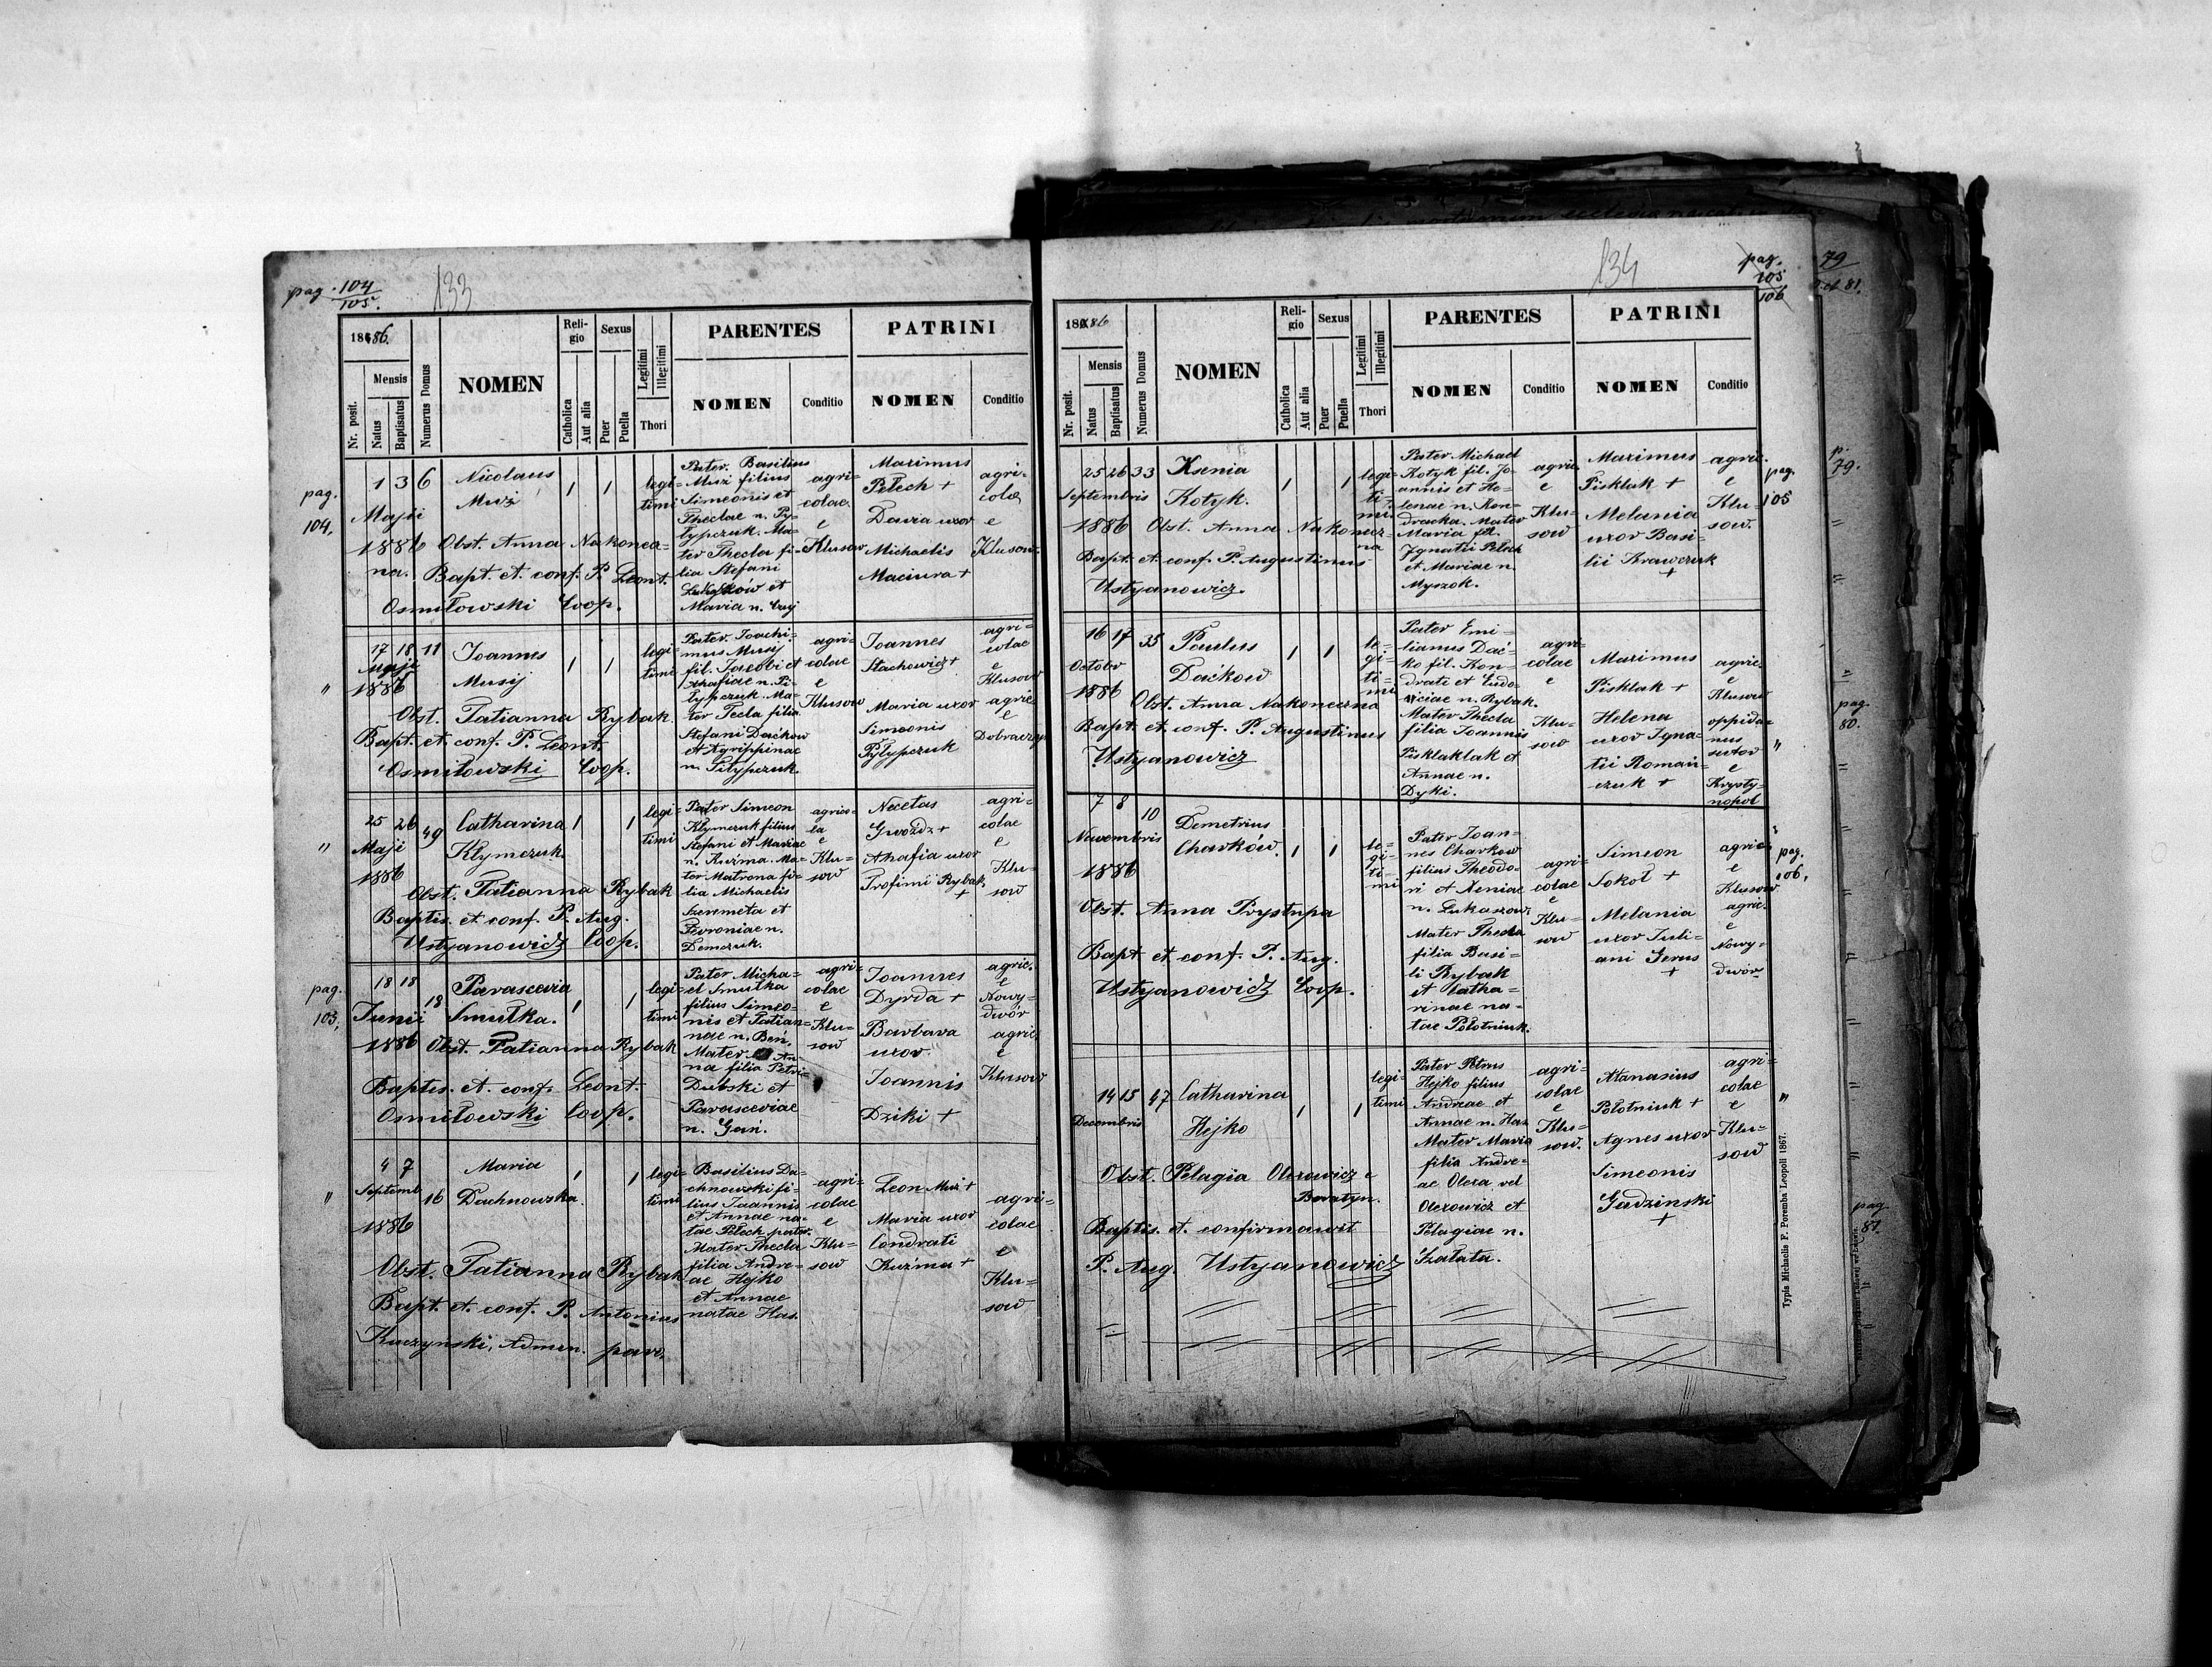 pag. 104
105.
133
1886.
Nr. posit.
Mensis
Natus
Baptisatus
Numerus Domus
NOMEN
Reli-
gio
Catholica
Aut alia
Sexus
Puer
Puella
Legitimi
Illegitimi
Thori
PARENTES
NOMEN
Conditio
PATRINI
NOMEN
Conditio
pag.
104,
1 3 6
Maji
1886
Nicolaus
Muż
1 1
legi-
timi
Obst. Anna Nakonecz-
na.
Bapt. et. conf. P. Leont.
Osmiłowski Coop.
Pater. Basilius
Muż filius
Simeonis et
Theclae n. Py-
lypczuk. Ma-
ter Thecla fi-
lia Stefani
et
Maria n.
agri-
colae
e
Klusow
Maximus
Pełech +
Daria uxor
Michaelis
Maciura +
agri-
colae
e
Klusow
"
17 18 11
Maji
1886
Joannes
Musij
1 1
legi-
timi
Obst. Tatianna Rybak.
Bapt. et. conf. P. Leont.
Osmiłowski Coop.
Pater. Joachi-
mus Musij
fil. Jacobi et
Ahafiae n. Pi-
lypczuk. Ma-
ter Tecla filia
Stefani Daćkow
et Agrippinae
n. Pilypczuk.
agri-
colae
e
Klusow
Joannes
Stachowicz +
Maria uxor
Simeonis
Pylypczuk
agri-
colae
e
Klusow
agric
e
Dobraczyn
"
25 26 49
Maji
1886
Catharina
Klymczuk.
1 1
legi-
timi
Obst. Tatianna Rybak
Baptis. et conf. P. Aug.
Ustyanowicz Coop.
Pater Simeon
Klymczuk filius
Stefani et Mariae
n. Kuźma. Ma-
ter Matrona fi-
lia Michaelis
Szeremeta et
Fevroniae n.
Demczuk.
agrico-
la
e
Klu-
sow
Necetas
Gwoźdz +
Ahafia uxor
Trofimi Rybak,
+
agri-
colae
e
Klu-
sow
pag.
105,
18 18 18
Junii
1886
Parascevia
Smułka.
1 1
legi-
timi
Obst. Tatianna Rybak
Baptis. et. conf. Leont.
Osmiłowski Coop.
Pater Micha-
el Smułka
filius Simeo-
nis et Tatian-
nae n. Beń.
Mater An-
na filia Petri
Dubski et
Parasceviae
n. Gań.
agri-
colae
e
Klu-
sow
Joannes
Dyrda +
Barbara
uxor
Joannis
Dziki +
agric.
e
Nowy-
dwór
agric.
e
Klusow
"
4 7 16
Septemb
1886
Maria
Dachnowska
1 1
legi-
timi
Obst. Tatianna Rybak
Bapt. et. conf. P. Antonius
Kuczynski, Admin. paro.
Basilius Da-
chnowski fi-
lius Joannis
et Annae na-
tae Pełech pater.
Mater Thecla
filia Andre-
ae Hejko
et Annae
natae Has.
agri-
colae
e
Klu-
sow
Leon Muż +
Maria uxor
Condrati
Kuźma +
agri-
colae
e
Klu-
sow
134
pag.
105
106
1886
Nr. posit.
Mensis
Natus
Baptisatus
Numerus Domus
NOMEN
Reli-
gio
Catholica
Aut alia
Sexus
Puer
Puella
Legitimi
Illegitimi
Thori
PARENTES
NOMEN
Conditio
PATRINI
NOMEN
Conditio
25 26 33
Septembris
1886
Ksenia
Kotyk.
1 1
legi-
ti-
mi.
Obst. Anna Nakonecz-
na
Bapt. et. conf. P. Augustinus
Ustyanowicz.
Pater Michael
Kotyk fil. Jo-
annis et He-
lenae n. Kon-
dracka. Mater
Maria fil.
Ignatii Pełech
et Mariae n.
Myszok.
agric.
e
Klu-
sow
Maximus
Pisklak +
Melania
uxor Basi-
lii Krawczuk
+
agric.
e
Klu-
sow.
pag.
105
16 17 35
Octobr
1886
Paulus
Daćkow
1 1
le-
gi-
ti-
mi
Obst. Anna Nakoneczna
Bapt. et. conf. P. Augustinus
Ustyanowicz
Pater Emi-
lianus Dać-
ko fil. Kon-
drati et Eudo-
xiciae n. Rybak.
Mater Thecla
filia Joannis
Pisklaklak et
Annae n.
Dyki.
agri-
colae
e
Klu-
sow
Maximus
Pisklak +
Helena
uxor Igna-
tii Roman-
czuk +
agric.
e
Klusow
oppida-
nus
sutor
e
Krysty-
nopol
"
7 8 10
Novembris
1886
Demetrius
Charków.
1 1
le-
gi-
ti-
mi
Obst. Anna Prystupa
Bapt et conf. P. Aug.
Ustyanowicz Coop.
Pater Joan-
nes Charkow
filius Theodo-
ri et Xeniae
n. Lukaszow.
Mater Thecla
filia Basi-
li Rybak
et Catha-
rinae na-
tae Połotniuk.
agri-
colae
e
Klu-
sow
Simeon
Sokoł +
Melania
uxor Juli-
ani Gerus
+
agric.
e
Klusow
agric.
e
Nowy-
dwór
pag.
106,
14 15 47
Decembris
Catharina
Hejko
1 1
legi-
timi
Obst. Pelagia Olexowicz e
Boratyn.
Baptis. et. confirmavit
P. Aug. Ustyanowicz
Pater Petrus
Hejko filius
Andreae et
Annae n. Has
Mater Maria
filia Andre-
ae Olexa vel
Olexowicz et
Pelagiae n.
Szałata.
agri-
colae
e
Klu-
sow.
Atanasius
Połotniuk +
Agnes uxor
Simeonis
Gadzinski
+
agri-
colae
e
Klu-
sow
"
Typis Michaelis F. Poremba Leopoli 1867.
79
et 81.
p.
79.
"
"
"
pag.
80.
pag.
81